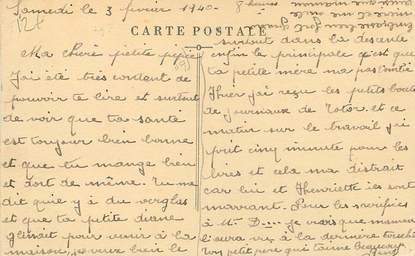 Samedi le 3 fevrier 1940 - 8 heures
CARTE POSTALE
Ma chère petite pépée
J'ai été très content de
pouvoir te lire et surtout
de voir que ta santé
est toujour bien bonne
et que tu mange bien
et dort de même. Tu me
dit qu'il y à du verglas
et que ta petite diane
glissait pour venir à la
maison, je veux bien le
surtout dans la descente
enfin le principale c'est que
ta petite mère ma pas oublié
Hier j'ai reçu les petits bouts
de journaux de Totor. et ce
matin sur le travail j'ai
prit cinq minute pour les
lires et cela ma distrait
car lui et Henriette ies sont
marivant. Pour les sacrifiés
à Mr D.... je vois que maman
Ton petit père qui t'aime Beaucoup